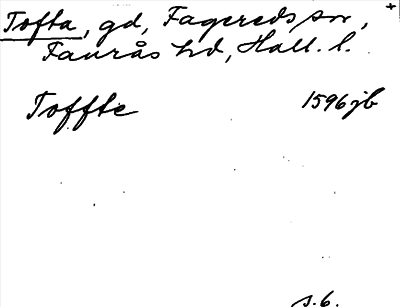 Tofta, gd, Fagereds sn,
Faurås hd, Hall. l.
Toffte 1596 jb
s. 6.